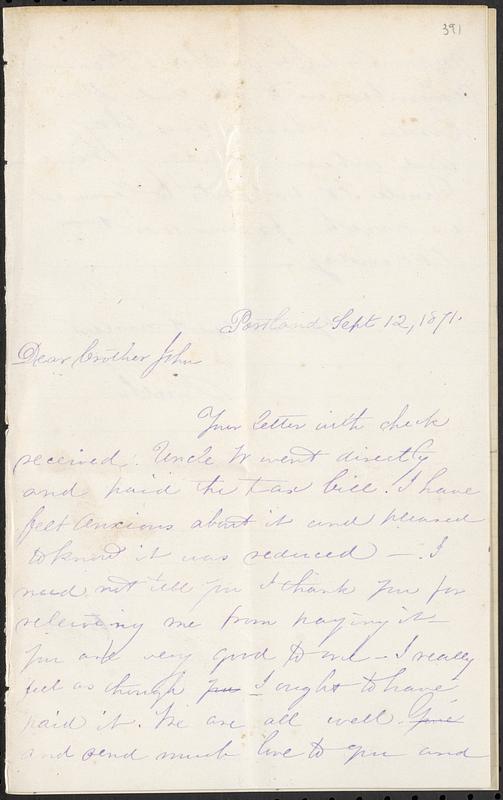 391
Portland Sept 12, 1871.
Dear Brother John
Your letter with check
received. Uncle W went directly
and paid the tax bill. I have
felt anxious about it and pleased
to know it was reduced — . I
need not tell you I thank you for
relieving me from paying it –
you are very good to me – I really
feel as though you I ought to have
paid it. We are all well.
and send much love to you and